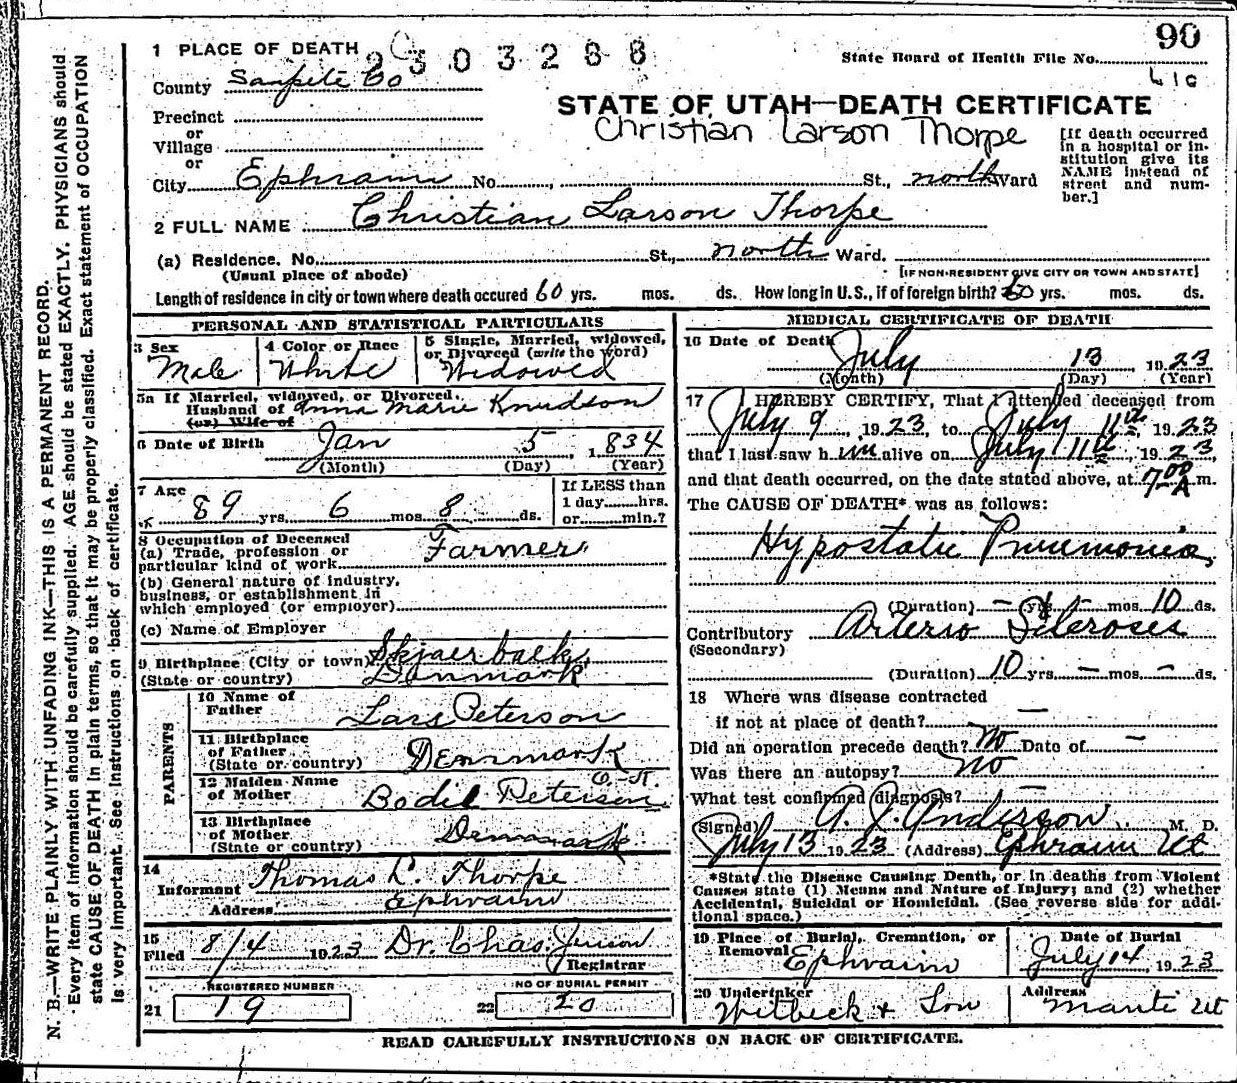 90
1 PLACE OF DEATH
2303288
State Board of Health File No.
County Sanpete Co
STATE OF UTAH—DEATH CERTIFICATE
Christian Larson Thorpe
Precinct
or
Village
or
City Ephraim No. , St., north Ward
[If death occurred
in a hospital or in-
stitution give its
NAME instead of
street and num-
ber.]
2 FULL NAME Christian Larson Thorpe
(a) Residence. No. St., north Ward.
(Usual place of abode)
[IF NON-RESIDENT GIVE CITY OR TOWN AND STATE]
Length of residence in city or town where death occured 60 yrs. mos. ds. How long in U.S., if of foreign birth? 60 yrs. mos. ds.
PERSONAL AND STATISTICAL PARTICULARS
3 Sex
Male
4 Color or Race
White
5 Single, Married, widowed,
or Divorced (write the word)
Widowed
5a If Married, widowed, or Divorced.
Husband of Anna Marie Knudson
(or) Wife of
6 Date of Birth Jan 5 1834
(Month) (Day) (Year)
7 Age
89 yrs. 6 mos. 8 ds.
If LESS than
1 day hrs.
or min.?
8 Occupation of Deceased
(a) Trade, profession or
particular kind of work Farmer
(b) General nature of industry,
business, or establishment in
which employed (or employer)
(c) Name of Employer
9 Birthplace (City or town) Skjaerbaek,
(State or country) Denmark
PARENTS
10 Name of
Father Lars Peterson
11 Birthplace
of Father
(State or country) Denmark
12 Maiden Name
of Mother Bodil Peterson
13 Birthplace
of Mother
(State or country) Denmark
14
Informant Thomas L. Thorpe
Address Ephraim
15
Filed 8/4 1923 Dr. Chas. Jenson
Registrar
REGISTERED NUMBER
21 19
NO OF BURIAL PERMIT
22 20
MEDICAL CERTIFICATE OF DEATH
16 Date of Death
July 13 1923
(Month) (Day) (Year)
17 I HEREBY CERTIFY, That I attended deceased from
July 9, 1923, to July 11th, 1923
that I last saw him alive on July 11th, 1923,
and that death occurred, on the date stated above, at 7:00 A m.
The CAUSE OF DEATH* was as follows:
Hypostatic Pneumonia
(Duration) – yrs – mos. 10 ds.
Contributory Arterio Sclerosis
(Secondary)
(Duration) 10 yrs. – mos. – ds.
18 Where was disease contracted
if not at place of death? —
Did an operation precede death? No Date of —
Was there an autopsy? No
What test confirmed diagnosis? —
(Signed) A. J. Anderson M. D.
July 13 1923 (Address) Ephraim Ut
*State the Disease Causing Death, or in deaths from Violent
Causes state (1) Means and Nature of Injury; and (2) whether
Accidental, Suicidal or Homicidal. (See reverse side for addi-
tional space.)
19 Place of Burial, Cremation, or
Removal Ephraim
Date of Burial
July 14 1923
20 Undertaker
Witbeck & Son
Address
Manti Ut
READ CAREFULLY INSTRUCTIONS ON BACK OF CERTIFICATE.
N. B.—WRITE PLAINLY WITH UNFADING INK—THIS IS A PERMANENT RECORD.
Every item of information should be carefully supplied. AGE should be stated EXACTLY. PHYSICIANS should
state CAUSE OF DEATH in plain terms, so that it may be properly classified. Exact statement of OCCUPATION
is very important. See instructions on back of certificate.